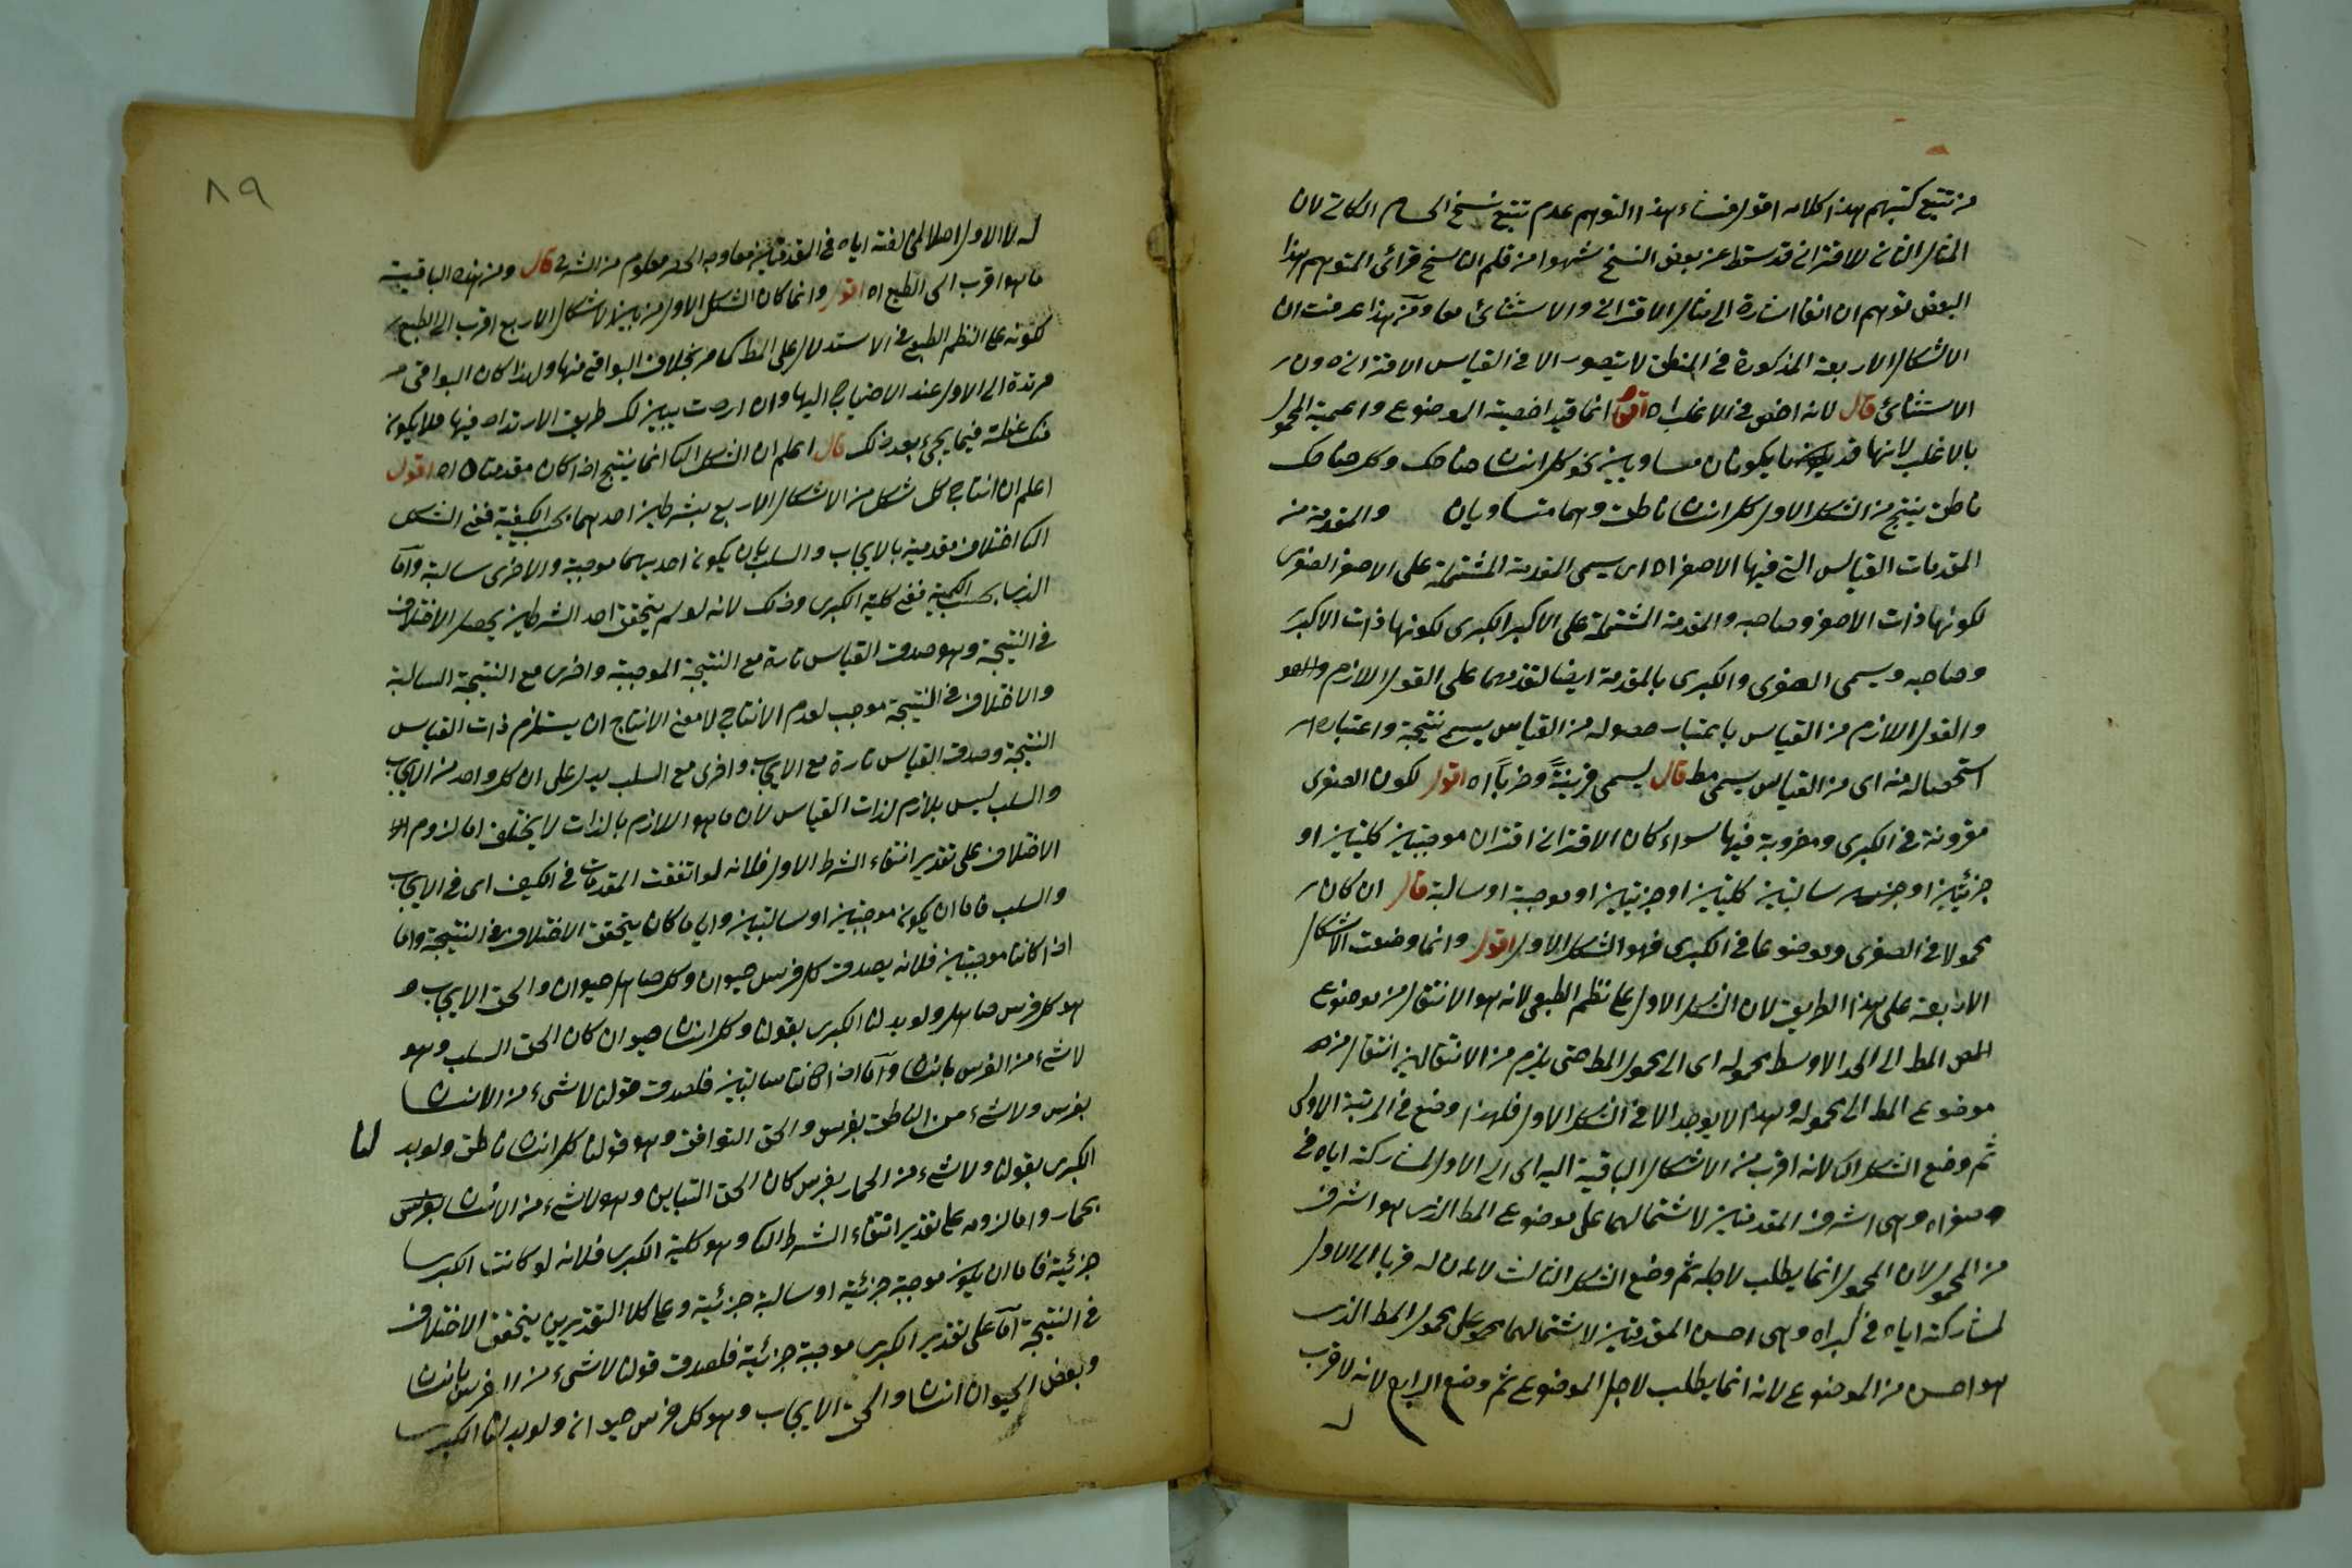 من تتبع كتبهم هذا كلامه اقول منشاء هذا التوهم عدم تتبع نسخ الحسام الكاتى لان
المثال الثانى للاقترانى قد سقط عن بعض النسخ سهوا من قلم الناسخ فرأى المتوهم هذا
البعض فتوهم ان انفا اشارة الى مثال الاقترانى والاستثنائى معا ومن هذا عرفت ان
الاشكال الاربعة المذكورة فى المنطق لا يتصور الا فى القياس الاقترانى دون
الاستثنائى قال لانه اخص فى الاغلب اه اقول انما قيد اخصية الموضوع واعمية المحمول
بالاغلب لانها قد يكونان مساويين نحو كل انسان ضاحك وكل ضاحك
ناطق ينتج من الشكل الاول كل انسان ناطق وهما متساويان والمقدمة من
المقدمات القياس التى فيها الاصغر اه اى يسمى المقدمة المشتملة على الاصغر الصغرى
لكونها ذات الاصغر وصاحبه والمقدمة المشتملة على الاكبر الكبرى لكونها ذات الاكبر
وصاحبه ويسمى الصغرى والكبرى بالمقدمة ايضا لتقدمهما على القول اللازم
والقول اللازم من القياس باعتبار حصوله من القياس يسمى نتيجة واعتبار
استحصاله منه اى من القياس يسمى مط قال يسمى قرينةً وضرباً اه اقول لكون الصغرى
مقرونة فى الكبرى ومضروبة فيها سواء كان الاقترانى اقتران موجبتين كليتين او
جزئيتين او سالبتين كليتين او جزئيتين او موجبة او سالبة قال ان كان
محمولا فى الصغرى وموضوعا فى الكبرى فهو الشكل الاول اقول وانما وضعت الاشكال
الاربعة على هذا الطريق لان الشكل الاول على نظم الطبعى لانه هو الانتقال من موضوع
المط الى الحد الاوسط بمحموله اى الى محمول المط حتى يلزم من الانتقالين انتقال من
موضوع المط الى محموله وهذا لا يوجد الا فى الشكل الاول فلهذا وضع فى المرتبة الاولى
ثم وضع الشكل الثا لانه اقرب من الاشكال الباقية اليه اى الى الاول لمشاركته اياه فى
صغراه وهى اشرف المقدمتين لاشتمالهما على موضوع المط الذى هو اشرف
من المحمول لان المحمول انما يطلب لاجله ثم وضع الشكل الثالث لان له قربا الى الاول
لمشاركته اياه فى كبراه وهى احسن المقدمتين لاشتمالهما على محمول المط الذى
هو احسن من الموضوع لانه انما يطلب لاجل الموضوع ثم وضع الرابع لانه لا قرب
له
٨٩
له لا الاول اصلا لمخالفته اياه فى المقدمتين معا وجه الحصر معلوم من الشرح قال ومن هذه الباقية
ما هو اقرب الى الطبع اه اقول وانما كان الشكل الاول من بين الاشكال الاربع اقرب الى الطبع
لكونه على النظم الطبعى فى الاستدلال على المط كما مر بخلاف البواقى منها ولهذا كان البواقى
مرتدة الى الاول عند الاحتياج اليها وان اردت تبيين لك طريق الارتداد فيها فلا يكون
منك غفلة فيما يجيء بعد ذلك قال اعلم ان الشكل الثا انما ينتج اذا كان مقدمتاه اه اقول
اعلم ان انتاج كل شكل من الاشكال الاربع بشرطين احدهما بحسب الكيفية ففى الشكل
الثا اختلاف مقدمتيه بالايجاب والسلب بان يكون احديهما موجبة والاخرى سالبة واما
الذى بحسب الكمية ففى كلية الكبرى وذلك لانه لو لم يتحقق احد الشرطين يحصل الاختلاف
فى النتيجة وهو صدق القياس تارة مع النتيجة الموجبة واخرى مع النتيجة السالبة
والاختلاف فى النتيجة موجب لعدم الانتاج لا معنى الانتاج ان يستلزم ذات القياس
النتيجة وصدق القياس تارة مع الايجاب واخرى مع السلب يدل على ان كل واحد من الايجاب
والسلب ليس بلازم لذات القياس لان ما هو اللازم بالذات لا يختلف اما لزوم
الاختلاف على تقدير انتفاء الشرط الاول فلانه لو اتفقت المقدمات فى الكيف اى فى الايجاب
والسلب فاما ان يكون موجبتين او سالبتين وايا ما كان يتحقق الاختلاف فى النتيجة واما
اذا كانتا موجبتين فلانه يصدق كل فرس حيوان وكل صاهل حيوان والحق الايجاب و
هو كل فرس صاهل ولو بدلنا الكبرى بقولنا وكل انسان حيوان كان الحق السلب وهو
لا شىء من الفرس بانسان واما اذا كانتا سالبتين فلصدق قولنا لا شىء من الانسان
بفرس ولا شىء من الناطق بفرس والحق التوافق وهو قولنا كل انسان ناطق ولو بد لنا
الكبرى بقولنا ولا شىء من الحمار بفرس كان الحق التباين وهو لا شىء من الانسان
بحمار واما لزومه على تقدير انتفاء الشرط الثا وهو كلية الكبرى فلانه لو كانت الكبرى
جزئية فاما ان يكون موجبة جزئية او سالبة جزئية وعلى كلا التقديرين يتحقق الاختلاف
فى النتيجة اما على تقدير الكبرى موجبة جزئية فلصدق قولنا لا شىء من الفرس بانسان
وبعض الحيوان انسان والحق الايجاب وهو كل فرس حيوان ولو بدلنا الكبرى